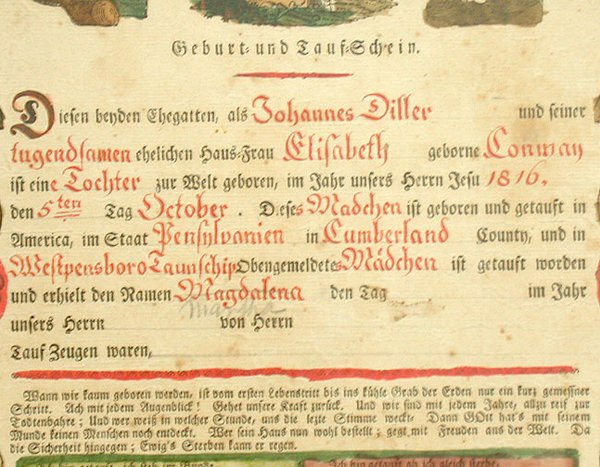 Geburt- und Tauf-Schein.
Diesen beyden Ehegatten, als Johannes Diller und seiner
tugendsamen ehelichen Haus-Frau Elisabeth geborne Conway
ist eine Tochter zur Welt geboren, im Jahr unsers Herrn Jesu 1816.
den 5ten Tag October. Dieses Madchen ist geboren und getauft in
America, im Staat Pensylvanien in Cumberland County, und in
Westpensboro Taunschip Obengemeldetes Mädchen ist getauft worden
und erhielt den Namen Magdalena den Tag im Jahr
unsers Herrn von Herrn
Tauf Zeugen waren,
Wann wir kaum geboren werden, ist vom ersten Lebenstritt bis ins kühle Grab der Erden nur ein kurz gemessner
Schritt. Ach mit jedem Augenblick! Gehet unsere Kraft zurück. Und wir sind mit jedem Jahre, allzu reif zur
Todtenbahre; Und wer weiß in welcher Stunde, uns die lezte Stimme weckt: Dann GOtt hat's mit seinem
Munde keinen Menschen noch entdeckt. Wer sein Haus nun wohl bestellt; geht mit Freuden aus der Welt. Da
die Sicherheit hingegen; Ewig's Sterben kann er regen.